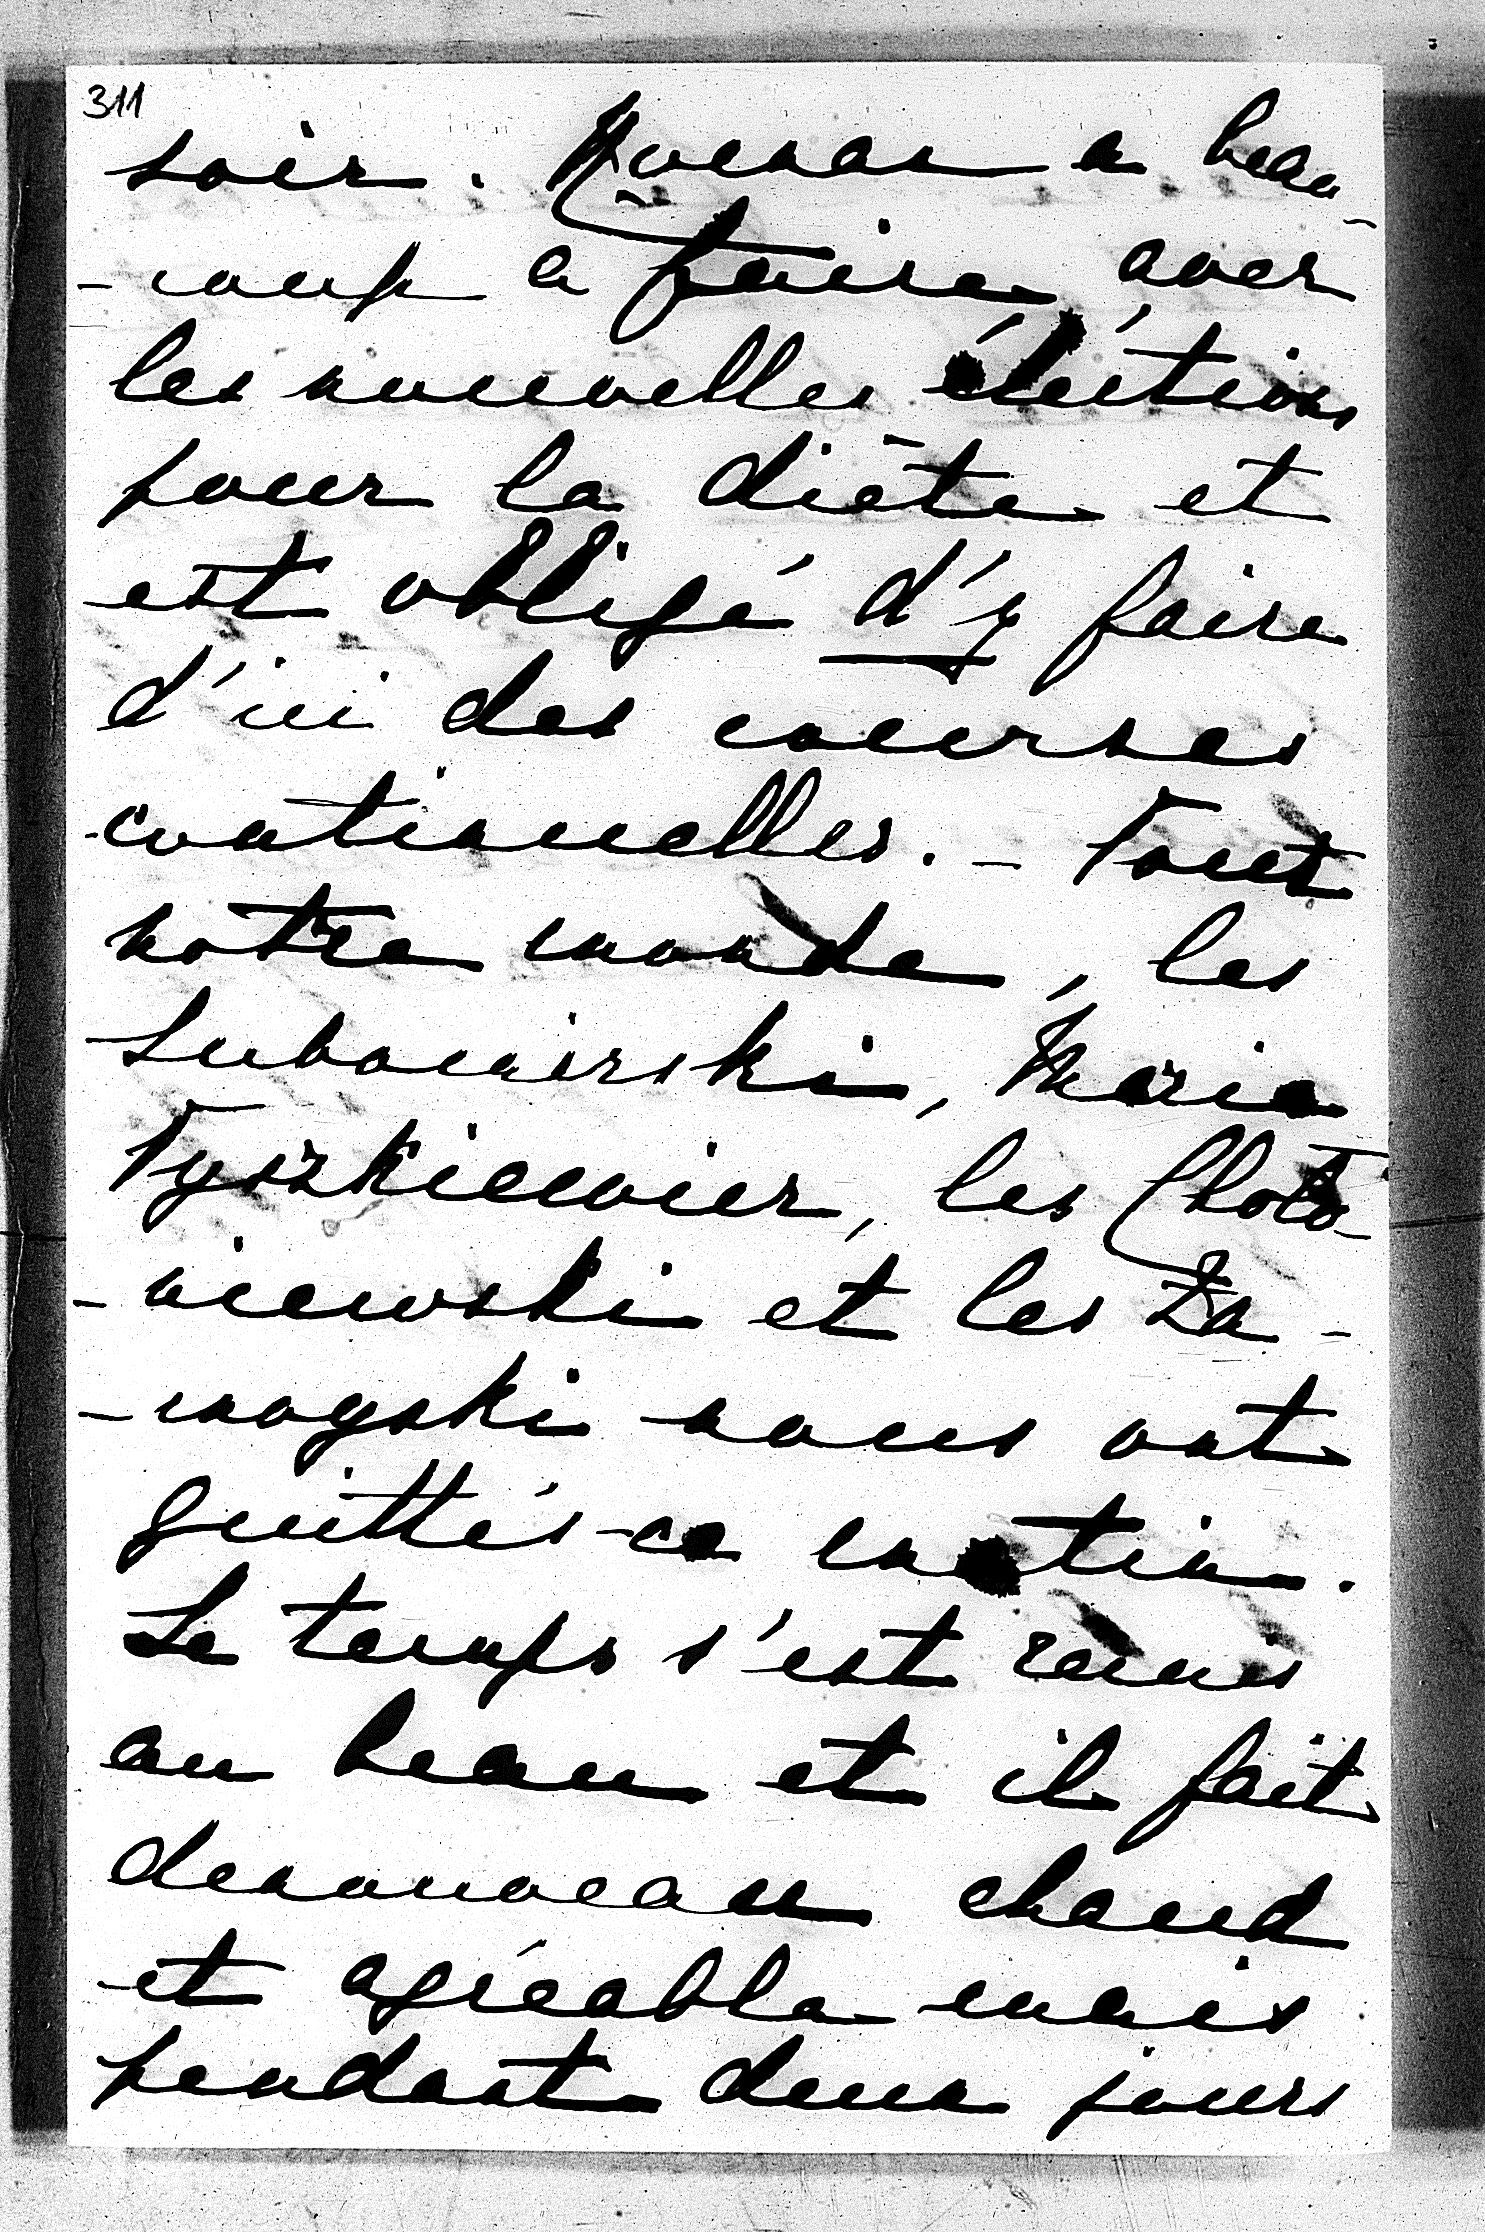 311
soir. Roman a beau-
-coup a faire avec
les nouvelles élections
pour la diète et
est obligé d'y faire
d'ici des courses
continuelles. - Tout
notre monde, les
Lubomirski, Maria
Tyszkiewicz, les Choło-
-niewski et les Za-
-moyski nous ont
quittés ce matin.
Le temps s'est remis
au beau et il fait
denouveau chaud
et agréable mais
pendant deux jours